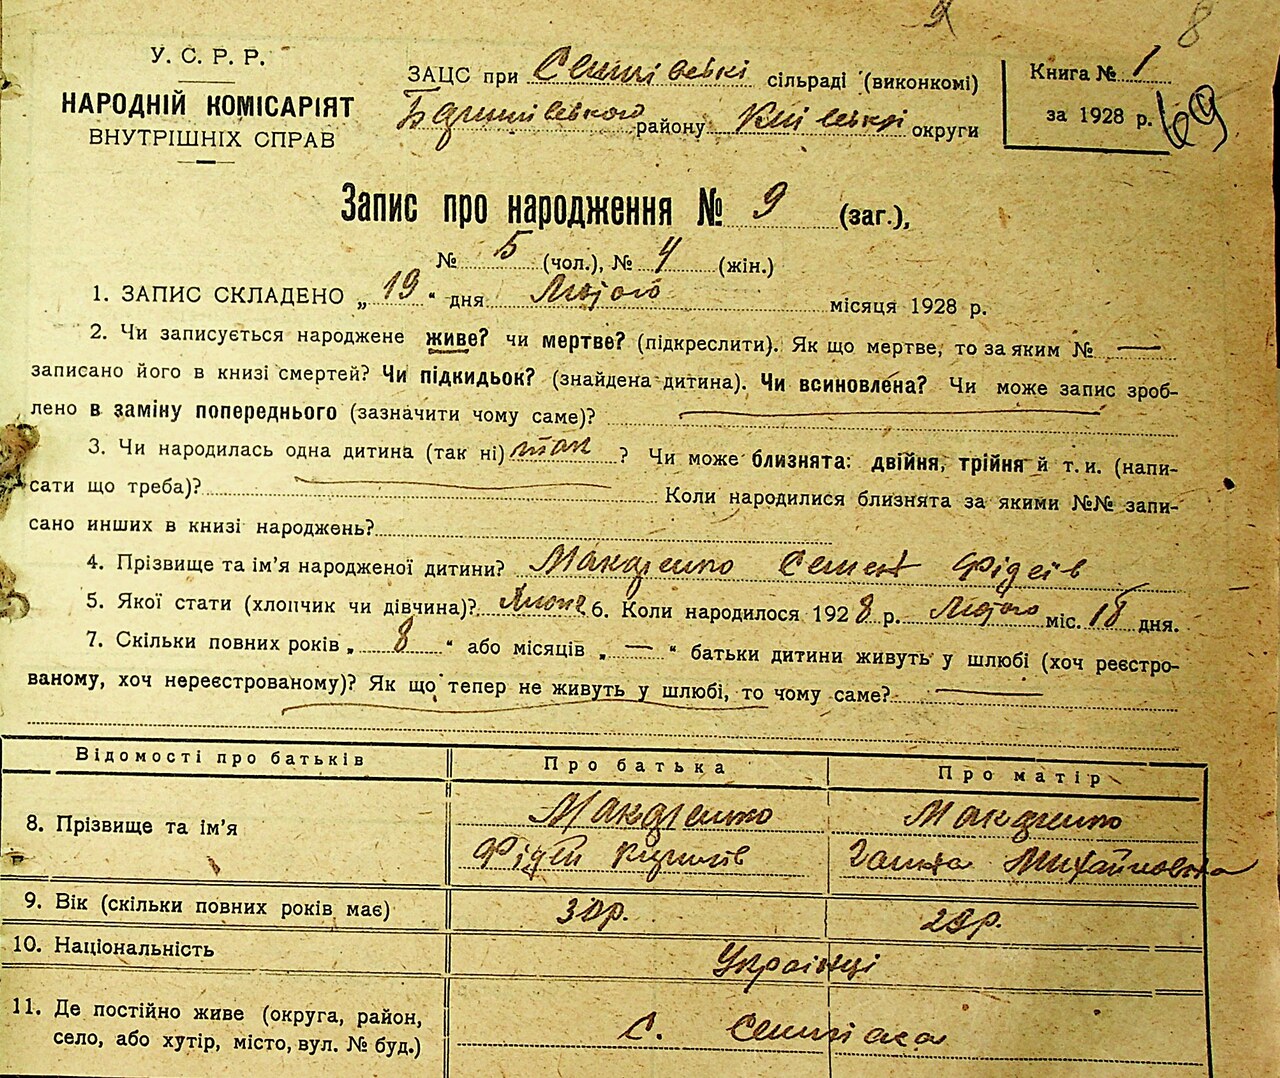 8
У. С. Р. Р.
НАРОДНІЙ КОМІСАРІЯТ
ВНУТРІШНІХ СПРАВ
ЗАЦС при сільраді (виконкомі)
району округи
Книга № 1
за 1928 р.
69
Запис про народження № 9 (заг.),
№ 5 (чол.), № 4 (жін.)
1. ЗАПИС СКЛАДЕНО „ 19 “ дня Лютого місяця 1928 р.
2. Чи записується народжене живе? чи мертве? (підкреслити). Як що мертве, то за яким № —
записано його в книзі смертей? Чи підкидьок? (знайдена дитина). Чи всиновлена? Чи може запис зроб-
лено в заміну попереднього (зазначити чому саме)?
3. Чи народилась одна дитина (так ні) так ? Чи може близнята: двійня, трійня й т. и. (напи-
сати що треба)? Коли народилися близнята за якими №№ запи-
сано инших в книзі народжень?
4. Прізвище та ім’я народженої дитини? Макаренко Семен Фідеїв
5. Якої стати (хлопчик чи дівчина)? 6. Коли народилося 1928 р. Лютого міс. 18 дня.
7. Скільки повних років „ 8 “ або місяців „ — “ батьки дитини живуть у шлюбі (хоч реєстро-
ваному, хоч нереєстрованому)? Як що тепер не живуть у шлюбі, то чому саме? —
Відомості про батьків Про батька Про матір
8. Прізвище та ім’я Макаренко Макаренко
Фідей Ганна Михайловна
9. Вік (скільки повних років має) 30р. 29р.
10. Національність Українці
11. Де постійно живе (округа, район,
село, або хутір, місто, вул. № буд.) с.